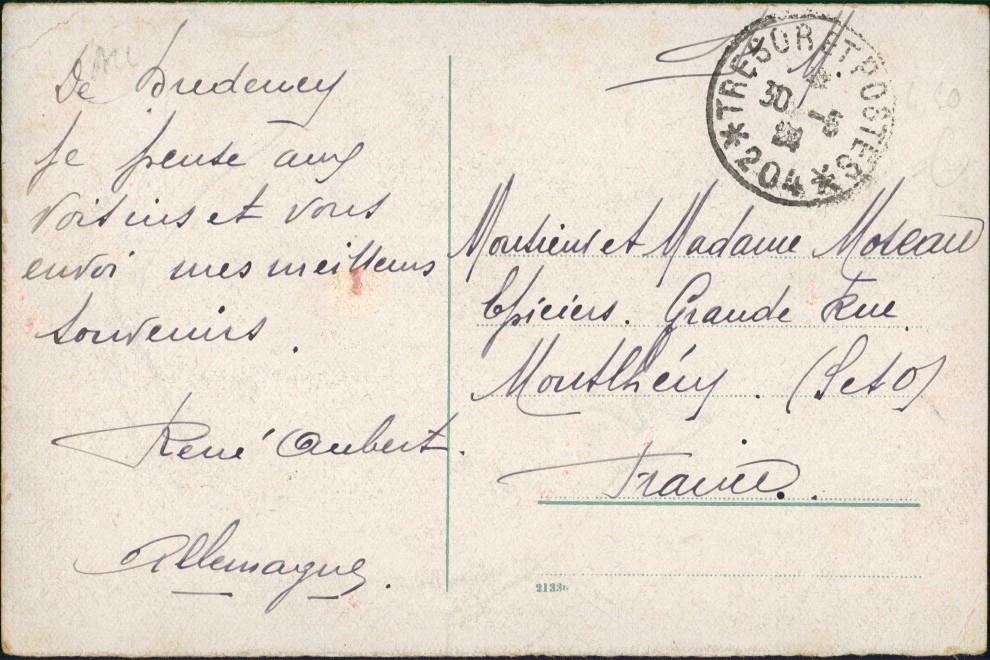 De Bredeney
Je pense aux
voisins et vous
envoi mes meilleurs
souvenirs.
René Aubert.
Allemagne.
F. M.
*TRESOR ET POSTES*
30 - 6
204
Monsieur et Madame Moreau
Epiciers. Grande Rue.
Montlhéry. (S et O)
France.
2133